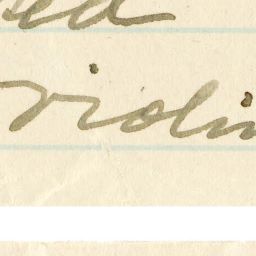 ed
violin